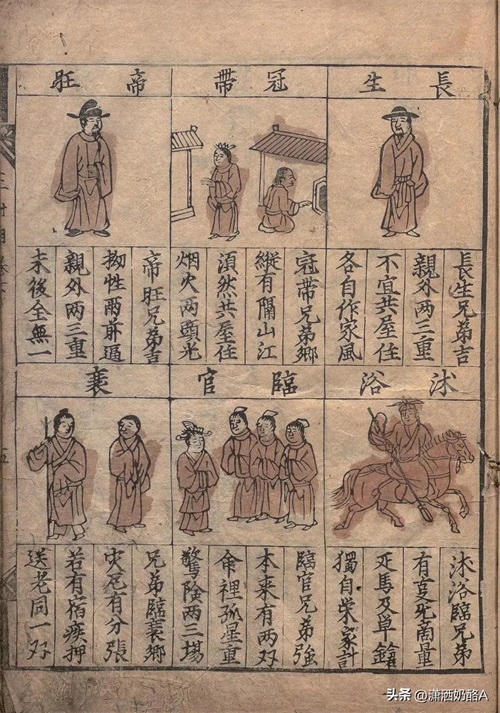 長生
長生兄弟吉
親外兩三重
不宜共屋住
各自作家風
冠帶
冠帶兄弟鄉
縱有隔山江
湏然共屋住
烟火兩頭光
帝旺
帝旺兄弟吉
拗性兩前逼
親外两三重
末後全無一
沐浴
沐浴臨兄弟
有死商量
死馬及单鎗
獨自榮家計
臨官
臨官兄弟強
本来有两双
命裡孤星重
驚險两三場
衰
兄弟臨衰鄉
灾厄有分張
若有宿疾押
送老同一双
五
头条 @潇洒奶酪A